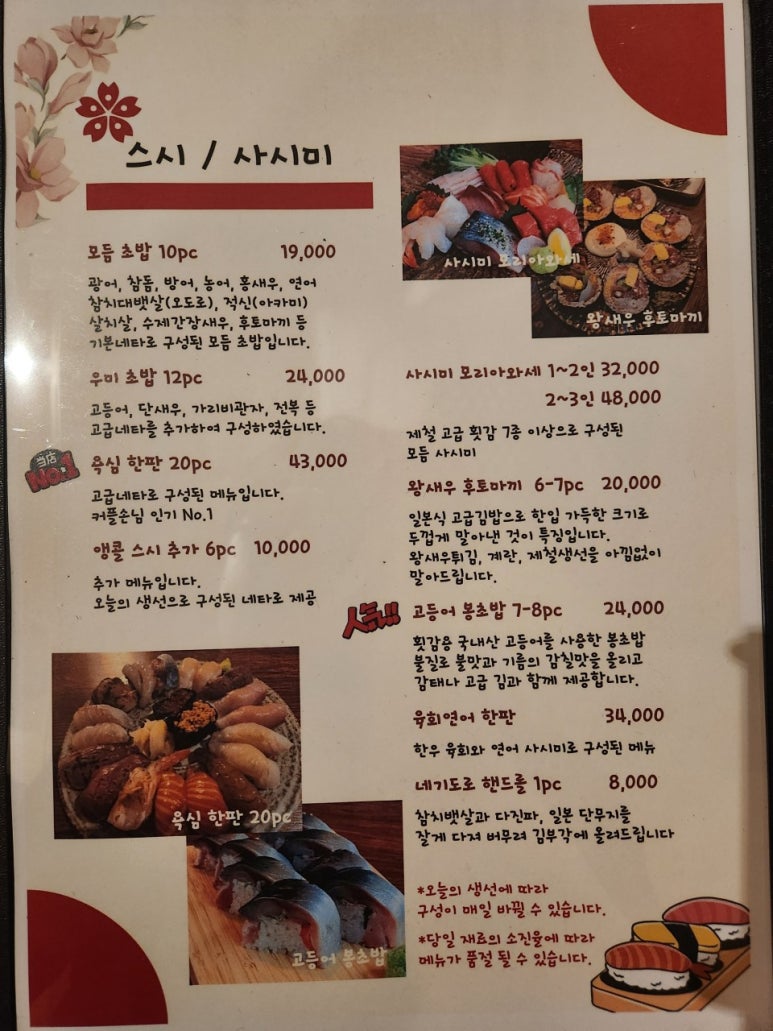 스시 / 사시미
모듬 초밥 10pc 19,000
광어, 참돔, 방어, 농어, 홍새우, 연어
참치대뱃살(오도로), 적신(아카미)
살치살, 수제간장새우, 후토마끼 등
기본네타로 구성된 모듬 초밥입니다.
우미 초밥 12pc 24,000
고등어, 단새우, 가리비관자, 전복 등
고급네타를 추가하여 구성하였습니다.
当店
No.1
욕심 한판 20pc 43,000
고급네타로 구성된 메뉴입니다.
커플손님 인기 No.1
앵콜 스시 추가 6pc 10,000
추가 메뉴입니다.
오늘의 생선으로 구성된 네타로 제공
욕심 한판 20pc
고등어 봉초밥
사시미 모리아와세
왕새우 후토마끼
사시미 모리아와세 1~2인 32,000
2~3인 48,000
제철 고급 횟감 7종 이상으로 구성된
모듬 사시미
왕새우 후토마끼 6-7pc 20,000
일본식 고급김밥으로 한입 가득한 크기로
두껍게 말아낸 것이 특징입니다.
왕새우튀김, 계란, 제철생선을 아낌없이
말아드립니다.
人気!!
고등어 봉초밥 7-8pc 24,000
횟감용 국내산 고등어를 사용한 봉초밥
불질로 불맛과 기름의 감칠맛을 올리고
감태나 고급 김과 함께 제공합니다.
육회연어 한판 34,000
한우 육회와 연어 사시미로 구성된 메뉴
네기도로 핸드롤 1pc 8,000
참치뱃살과 다진파, 일본 단무지를
잘게 다져 버무려 김부각에 올려드립니다
*오늘의 생선에 따라
구성이 매일 바뀔 수 있습니다.
*당일 재료의 소진율에 따라
메뉴가 품절 될 수 있습니다.